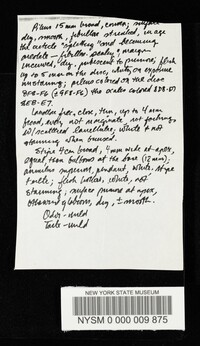 Pileus 15 mm broad, convex; surface
dry, smooth, fibrillose streaked, in age
the cuticle "splitting" and becoming
incurved, dry, to flesh
up to 5 mm on the disc, white, on exposure
unchanging; pileus colored on the disc
8F8-F6 (±9F8-F6) the scales colored 8D8-E7
8E8-E7.
Lamellae free, close, thin, up to 4 mm
broad, even, not marginate, not forking,
w/ scattered lamellulae, white & not
staining when bruised.
Stipe 4 cm broad, 4 mm wide at apex,
equal then bulbous at the base (12 mm);
annulus superous, pendant, white, stipe
flesh hollow, white, not
staining; surface pruinose at apex,
otherwise glabrous, dry, ± smooth.
Odor - mild
Taste - mild
NEW YORK STATE MUSEUM
NYSM 0 000 009 875